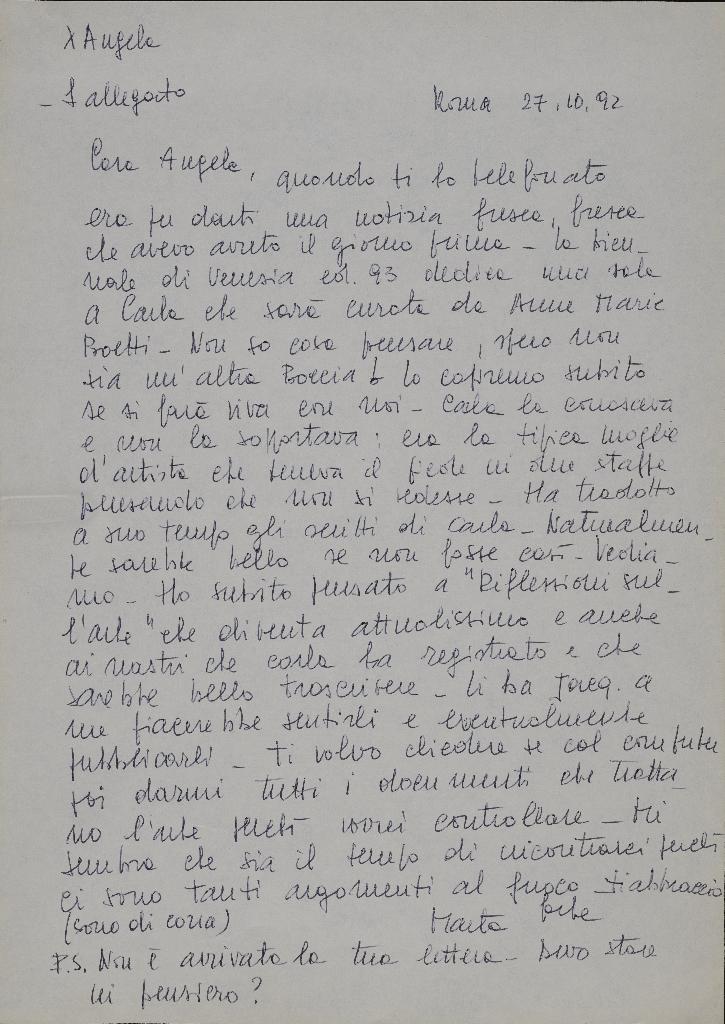 X Angela
- 1 allegato
Roma 27.10.92
Cara Angela, quando ti ho telefonato
era per darti una notizia fresca, fresca
che avevo avuto il giorno prima - la Bien_
nale di Venezia ed. 93 dedica una sala
a Carla che sarà curata da Anne Marie
Boetti - Non so cosa pensare, spero non
sia un'altra Boccia lo capremo subito
se si farà viva con noi - Carla la conosceva
e non la sopportava; era la tipica moglie
d'artista che teneva il piede in due staffe
pensando che non si vedesse - Ha tradotto
a suo tempo gli scritti di Carla - Naturalmen_
te sarebbe bello se non fosse così - Vedia_
mo - Ho subito pensato a "Riflessioni sul_
l'arte" che diventa attualissimo e anche
ai nastri che Carla ha registrato e che
sarebbe bello trascrivere - li ha Jacq. a
me piacerebbe sentirli e eventualmente
pubblicarli - Ti volvo chiedere se col computer
poi darmi tutti i documenti che tratta_
no l'arte perché vorrei controllare - Mi
sembra che sia il tempo di incontrarci perché
ci sono tanti argomenti al fuoco - ti abbraccio
(sono di corsa) Marta
P.S. Non è arrivata la tua lettera - Devo stare
in pensiero?